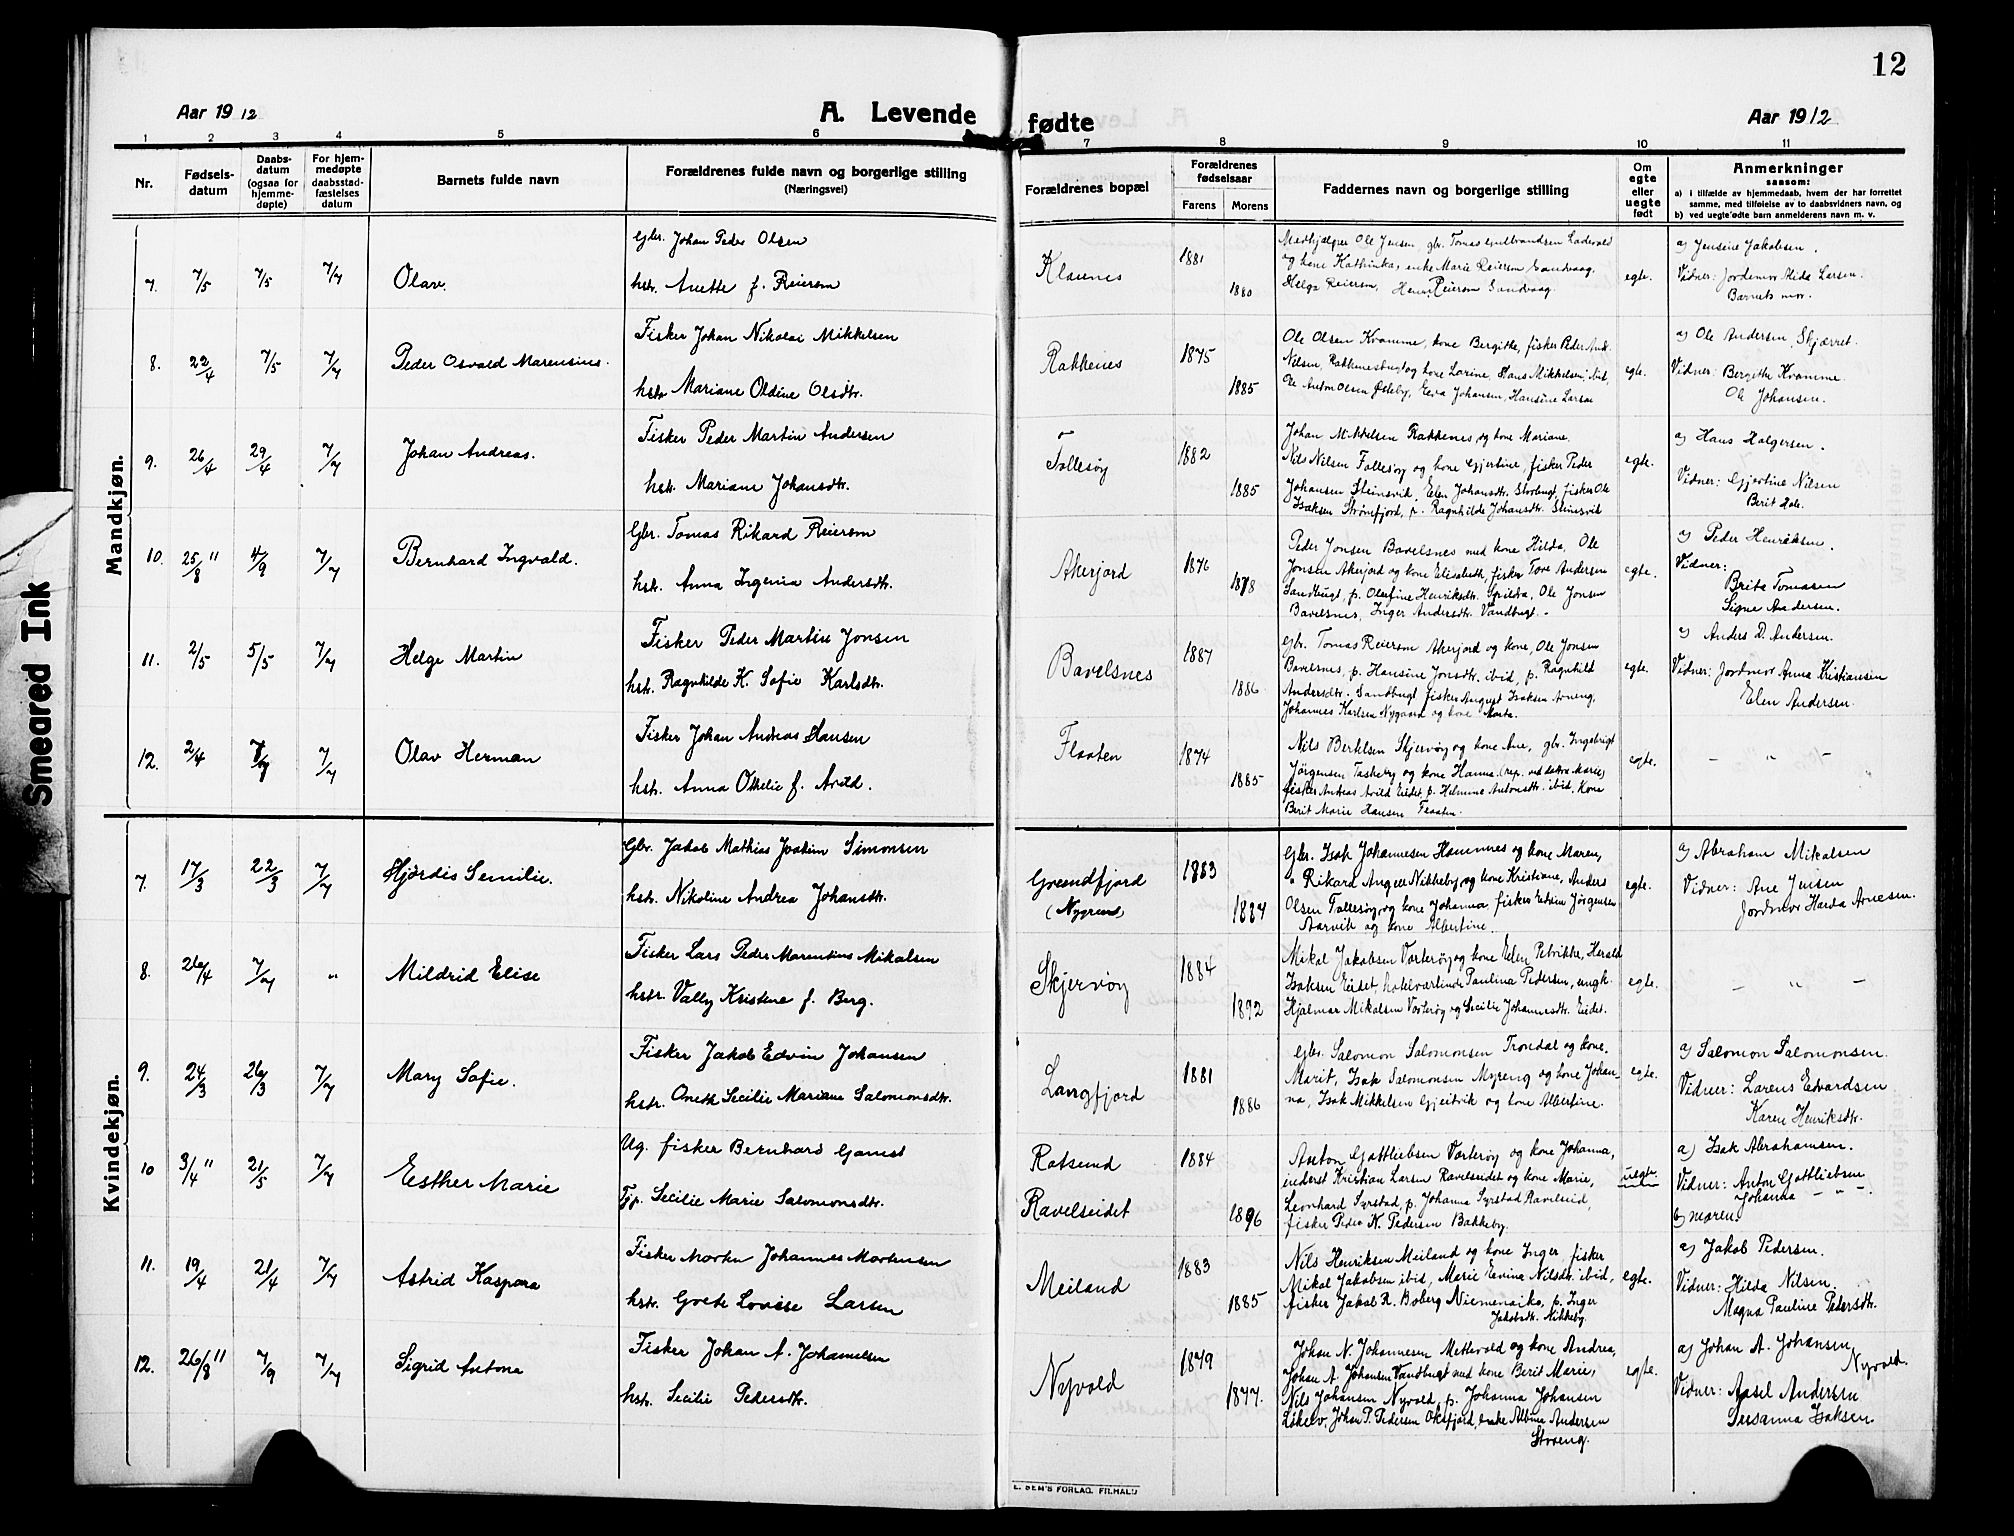 12
Aar 1912
A. Levende
fødte
Aar 1912
1 2 3 4 5 6 7 8 9 10 11
Nr.
Fødsels-
datum
Daabs-
datum
(ogsaa for
hjemme-
døpte)
For hjem-
medøpte
daabsstad-
fæstelses
datum
Barnets fulde navn
Forældrenes fulde navn og borgerlige stilling
(Næringsvei)
Forældrenes bopæl
Forældrenes
fødselsaar
Farens
Morens
Faddernes navn og borgerlige stilling
Om
egte
eller
uegte
født
Anmerkninger
saasom:
a) i tilfælde av hjemmedaab, hvem der har forrettet
samme, med tilføielse av to daabsvidners navn, og
b) ved uegte fødte barn anmelderens navn m. v.
Mandkjøn.
7. 7/5 7/5 7/7 Olav.
Gbr. Johan Peder Olsen
hstr. Anette f. Reiersen
Klaunes 1881 1880
Medhjælper Ole Jensen, gbr. Tomas Gulbrandsen Ladevold
og kone Kathinka, enke Marie Reiersen Sandvaag,
Helga Reiersen, Henr. Reiersen Sandvaag.
egte.
a) Jensine Jakobsen.
Vidner: Jordemor Alida Larsen.
Barnets mor.
8. 22/4 7/5 7/7 Peder Osvald Marensius.
Fisker Johan Nikolai Mikkelsen
hstr. Mariane Oldine Olsdtr.
Rakkenes 1875 1885
Ole Olsen Kramme, kone Bergitte, fisker Peder And.
Nilsen, Rakkenesbugt og kone Lorine, Hans Mikkelsen,
Ole Anton Olsen Ørteby, Eva Johansen, Hansine Larsen
egte.
a) Ole Andersen Skjærret.
Vidner: Bergitte Kramme.
Ole Johansen.
9. 26/4 29/4 7/7 Johan Andreas.
Fisker Peder Martin Andersen
hstr. Mariane Johansdtr.
Follesøy 1882 1885
Johan Mikkelsen Rakkenes og kone Mariane.
Nils Nilsen Follesøy og kone Gjertine, fisker Peder
Johansen Steinsvik, Elen Johansdtr. Storbugt, fisker Ole
Isaksen Strømfjord, p. Ragnhilde Johansdtr. Steinsvik
egte.
a) Hans Holgersen.
Vidner: Gjertine Nilsen
Berit
10. 25/8 " 4/9 7/7 Bernhard Ingvald.
Gbr. Tomas Rikard Reiersen
hstr. Anna Ingenia Andersdtr.
Akerjord 1876 1878
Peder Jonsen Bavelsnes med kone Hilda, Ole
Jonsen Akerjord og kone Elisabeth, fisker Tore Andersen
Sandbugt, p. Olufine Henriksdtr. Grilda, Ole Jonsen
Bavelsnes, Inger Andersdtr. Vandbugt. -
egte.
a) Peder Henriksen.
Vidner:
Brita Tomasen
Signe Andersen.
11. 2/5 5/5 7/7 Helge Martin
Fisker Peder Martin Jonsen
hstr. Ragnhilde K. Sofie Karlsdtr.
Bavelsnes 1887 1886
Gbr. Tomas Reiersen Akerjord og kone, Ole Jonsen
Bavelsnes, p. Hansine Jonsdtr. ibid, p. Ragnhild
Andersdtr. Sandbugt fisker August Isaksen Arneng,
Johannes Karlsen Nygaard og kone Marta.
egte.
a) Anders D. Andersen.
Vidner: Jordmor Anna Kristiansen
Elen Andersen.
12. 2/4 7/7 7/7 Olav Herman
Fisker Johan Andreas Hansen
hstr. Anna Othelie f. Arild.
Flaaten 1874 1885
Nils Berthelsen Skjervøy og kone Ane, gbr. Ingebrigt
Jørgensen Taskeby og kone Hanna (rep. ved datter Marie)
fisker Andreas Arild Eidet, p. Helmine Antonsdtr. ibid, Kone
Berit Marie Hansen Flaaten.
egte.
- " -
Kvindekjøn.
7. 17/3 22/3 7/7 Hjørdis Semilie.
Gbr. Jakob Mathias Joakim Simonsen
hstr. Nikoline Andrea Johansdtr.
Grundfjord
(Nygrund) 1883 1887
Gbr. Isak Johannesen Hamnnes og kone Maren,
" Rikard Angell Nikkeby, og kone Kristiane, Anders
Olsen Follesøy, og kone Johanna, fisker Edvin Jørgensen
Aarvik og kone Albertine.
egte.
a) Abraham Mikalsen
Vidner: Ane Jensen
Jordmor Harda Arnesen.
8. 26/4 7/7 " Mildrid Elise
Fisker Lars Peder Marentius Mikalsen
hstr. Vally Kristine f. Berg.
Skjervøy 1884 1892
Mikal Jakobsen Vorterøy og kone Elen Petrikke, Herald
Isaksen Eidet, hotelværtinde Paulina Pedersen, ungk.
Hjalmar Mikalsen Vorterøy og Secilie Johannesdtr. Eidet.
egte.
- " -
9. 24/3 26/3 7/7 Mary Sofie.
Fisker Jakob Edvin Johansen
hstr. Oneth Secilie Mariane Salomonsdtr.
Langfjord 1881 1886
Gbr. Salomon Salomonsen Trondal og kone
Marit, Isak Salomonsen Myreng og kone Johan-
na, Isak Mikkelsen Gjeitvik og kone Albertine.
egte.
a) Salomon Salomonsen.
Vidner: Larens Edvardsen
Karen Henriksdtr.
10 3/4 " 21/5 7/7 Esther Marie
Ug. fisker Bernhard Gamst
Tjp. Secilie Marie Salomonsdtr.
Rotsund 1884
Ravelseidet 1896
Anton Gottliebsen Vorterøy og kone Johanna,
inderst Kristian Larsen Ravelseidet og kone Marie,
Leonhard Syrstad, p. Johanna Syrstad Ravelseid,
fisker Peder N. Pedersen Bakkeby.
uegte.
a) Isak Abrahamsen.
Vidner: Anton Gottliebsen
Johanna - " -
b) moren.
11. 19/4 21/4 7/7 Astrid Kaspara
Fisker Morten Johannes Mortensen
hstr. Grete Lovise Larsen
Meiland 1883 1885
Nils Henriksen Meiland og kone Inger fisker
Mikal Jakobsen ibid, Marie Evina Nilsdtr. ibid,
fisker Jakob R. Boberg Niemenaike, p. Inger
Jakobsdtr. Nikkeby.
egte.
a) Jakob Pedersen.
Vidner: Hilda Nilsen.
Magna Pauline Pedersdtr.
12. 26/8 " 7/9 7/7 Sigrid Antona
Fisker Johan A. Johannesen
hstr. Secilie Pedersdtr.
Nyvold 1879 1877.
Johan N. Johannesen Mettevold og kone Andrea,
Johan A. Johansen Vandbugt med kone Berit Marie,
Nils Johansen Nyvold, p. Johanna Johansen
Lökelv, Johan P. Pedersen Oksfjord, enke Albine Andersen
Straeng.
egte.
a) Johan A. Johansen
Nyvold.
Vidner: Assel Andersen
Susanna Isaksen.
E. SEM'S FORLAG, FR.HALD
Smeared Ink